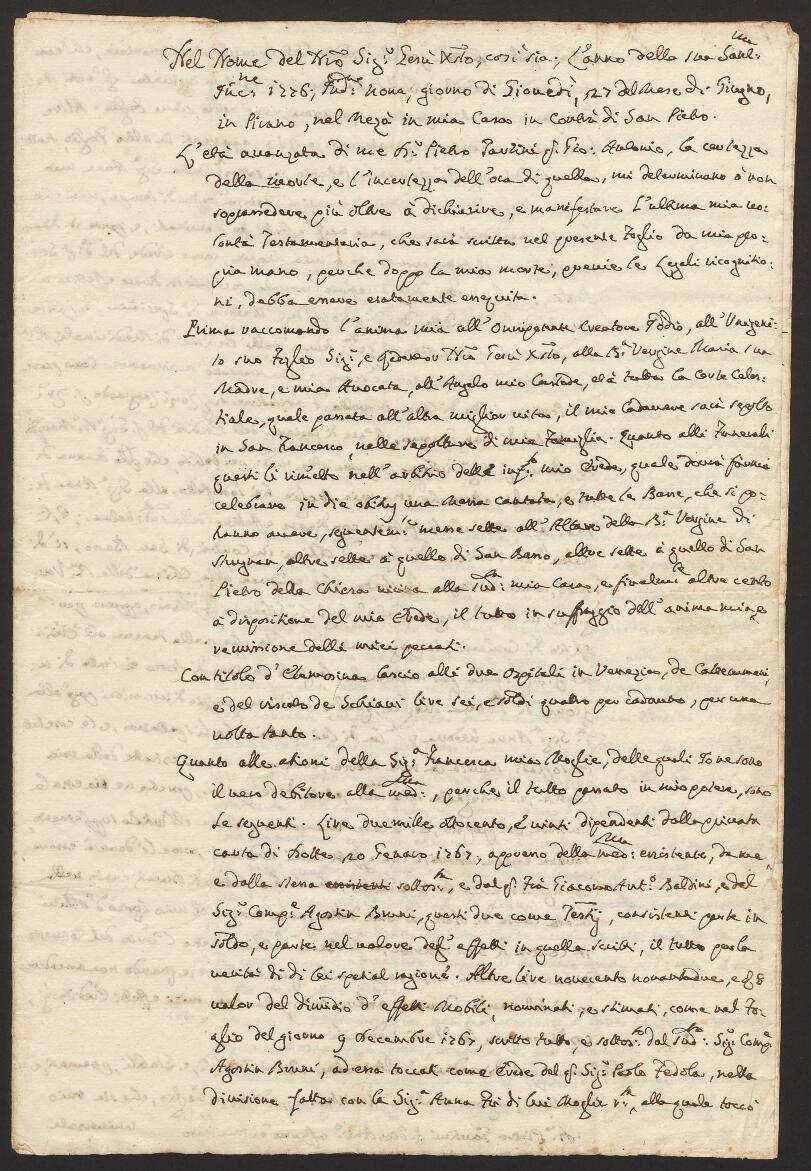 Nel Nome del Nrô Sig.r Gesù Xsto, così sia; L'anno della sua Sant.ma
Inc.ne 1776; Ind.ne Nona, giorno di Giovedì, 27 del Mese di Giugno,
in Pirano, nel Mezà in mia Casa in Contrà di San Pietro.
L'età avanzata di me Pietro q. Gio: Antonio, la certezza
della morte, e l'incertezza dell'ora di quella, mi determinano à non
soprasedere più oltre à dichiarire, e manifestare L'ultima mia vo-
lontà Testamentaria, che sarà scritta nel presente foglio da mia pro-
pria mano, perche doppo la mia morte, previe le Legali ricognitio-
ni, debba essere esatamente esseguita.
Prima raccomando l'anima mia all'Onnipotente Creatore Iddio, all'Unigeni-
to suo Figlio Sig.r, e Redentor Nrô Gesù Xsto, alla B.a Vergine Maria sua
Madre, e mia Avocata, all'Angelo mio Custode, et à tutta la Corte Celes-
tiale, quale passata all'altra miglior vita, il mio Cadavere sarà sepolto
in San Francesco, nelle sepolture di mia Famiglia. Quanto alli Funerali
questi li rimetto nell'arbitrio dell' mio Erede, quale dovrà farmi
celebrare in die obitus una Messa cantata, e tutte le Basse, che si po-
tranno avere, seguentem.te messe sette all'Altare della B.a Vergine di
Strugnan, altre sette à quello di San Basso, altre sette à quello di San
Pietro della Chiesa vicina alla sud.ta mia Casa, e finalm.te altre cento
à dispositione del mio Erede, il tutto in suffraggio dell'anima mia, e
remissione delli miei peccati.
Con titolo d'Elemosina lascio alli due Ospitali in Venezia, de Catecumeni,
e del riscato de Schiavi lire sei, e soldi quatro per cadauno, per una
volta tanto.
Quanto alle ationi della Sig.a Francesca mia Moglie, delle quali Io ne sono
il vero debitore alla med.ma, perche il tutto passato in mio potere, sono
Le seguenti. Lire duemille ottocento, e vinti dipendenti dalla privata
carta di Dotte 20 Genaro 1767, appresso della med.ma essistente, da me,
e dalla stessa essistenti sottos.ta, e dal q. Frà Giacomo Ant.o Baldini, e del
Sig.r Comp.e Agostin Bruni, questi due come Testij, consistenti parte in
soldo, e parte nel valore degl'effetti in quella scritti, il tutto per la
verità di di lei spetial ragione. Altre lire novecento novantadue, e s 8
valor del dimidio d'effetti Mobili, nominati, e stimati, come nel Fo-
glio del giorno 9 Decembre 1767, scritto tutto, e sottos.to dal sud.to Sig.r Comp.e
Agostin Bruni, ad essa toccati come Erede del q. Sig.r Paolo Fedola, nella
divisione fatta con la Sig.a Anna di lui Moglie, alla quale toccò